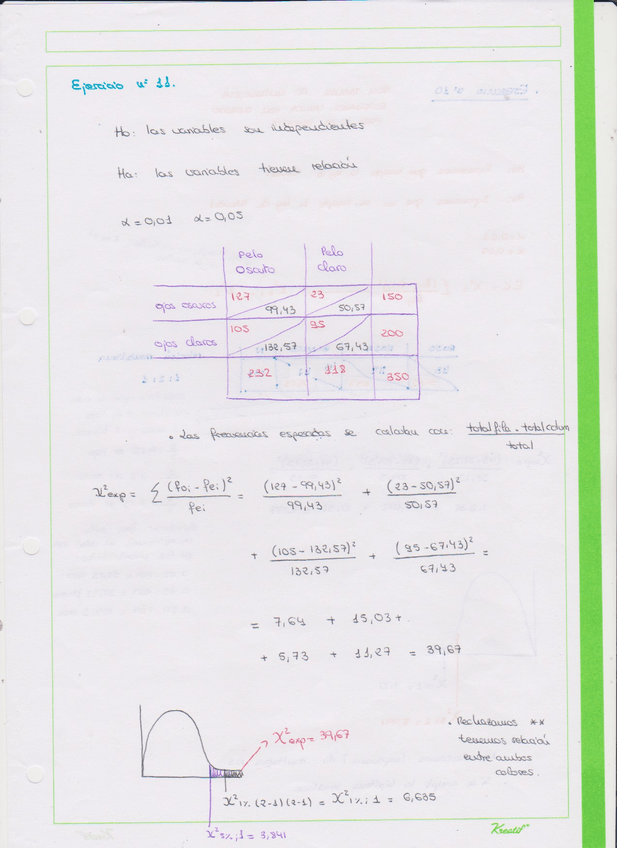 Ejercicio nº 11.
Ho: las variables son independientes
Ha: las variables tienen relación
α = 0,01 α = 0,05
Pelo Oscuro Pelo Claro
ojos oscuros 127 99,43 23 50,57 150
ojos claros 105 132,57 95 67,43 200
232 118 350
• Las frecuencias esperadas se calculan con: total fila · total colum / total
χ²exp = Σ (foi - fei)² / fei = (127 - 99,43)² / 99,43 + (23 - 50,57)² / 50,57
+ (105 - 132,57)² / 132,57 + (95 - 67,43)² / 67,43 =
= 7,64 + 15,03 +
+ 5,73 + 11,27 = 39,67
χ²exp = 39,67
• Rechazamos **
tenemos relación
entre ambos
colores.
χ² 1%(2-1)(2-1) = χ² 1%; 1 = 6,635
χ² 5%; 1 = 3,841
Kreatif